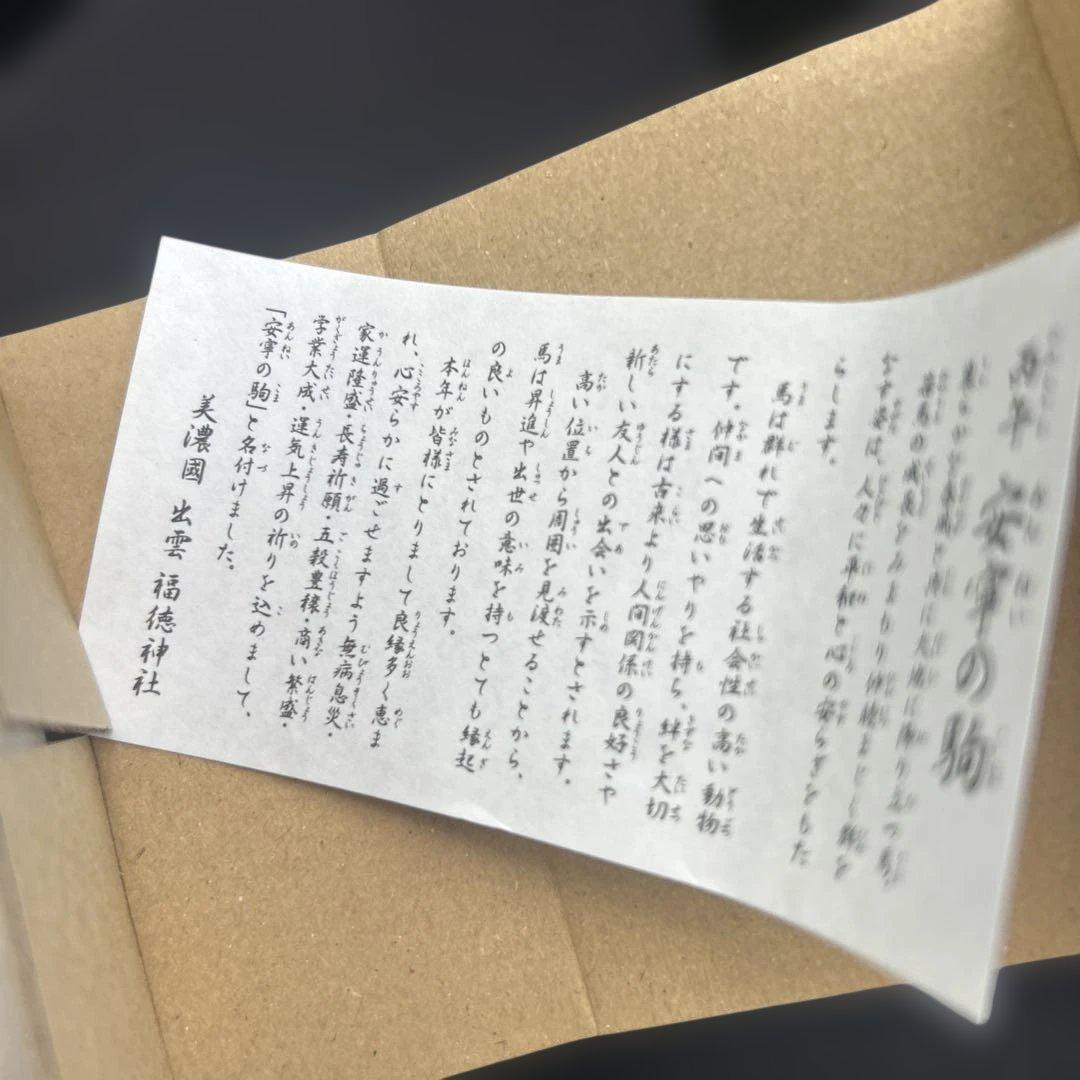 安寧の駒
なす姿は、人々に平和と心の安らぎをもた
らします。
馬は群れで生活する社会性の高い動物
です。仲間への思いやりを持ち、絆を大切
にする様は古来より人間関係の良好さや
新しい友人との出会いを示すとされます。
高い位置から周囲を見渡せることから、
馬は昇進や出世の意味を持つとても縁起
の良いものとされております。
本年が皆様にとりまして良縁多く恵ま
れ、心安らかに過ごせますよう無病息災・
家運隆盛・長寿祈願・五穀豊穣・商い繁盛・
学業大成・運気上昇の祈りを込めまして、
「安寧の駒」と名付けました。
美濃國 出雲福徳神社